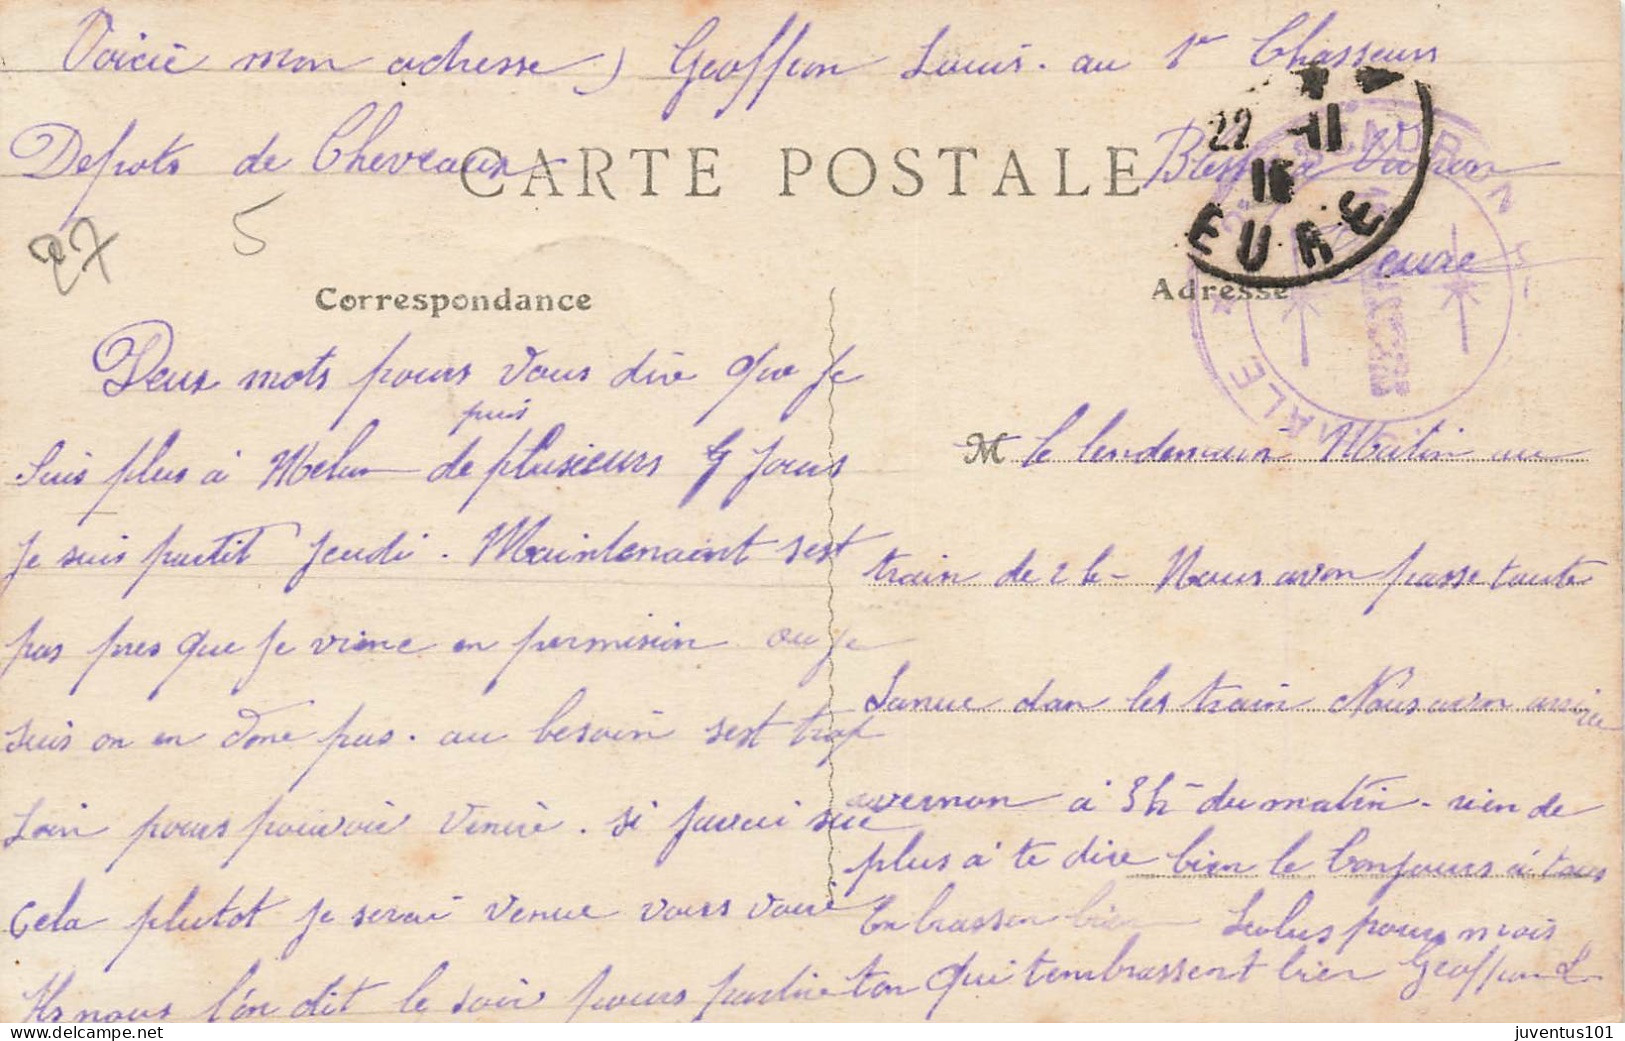 Voicie mon adresse) Geoffron Louis. au 1er Chasseurs
Depots de Cheveaux
CARTE POSTALE
à Vernon
22 -11
16
EURE
eure
27
5
Correspondance
Adresse
Deux mots pours vous dire que je
suis plus à Melun depuis plusieurs jours
je suis partit jeudi. Maintenaint sest
pas pres que je viene en permision ou je
suis on en done pas. au besoin sest trop
Loin pours pouvoir venire. si javai sue
Cela plutot je serai venue vours voire
Ils nous l'on dit le soir pours partire
M le lendemain Matin au
train de 2 h- Nous avon passe toute
la nue dan les train Nous avon arrivee
a vernon à 3h- du matin. rien de
plus a te dire bien le bonjours à tous
Enbrassen bien Lulus pours mois
ton qui tembrassent bien Geoffron L
juventus101